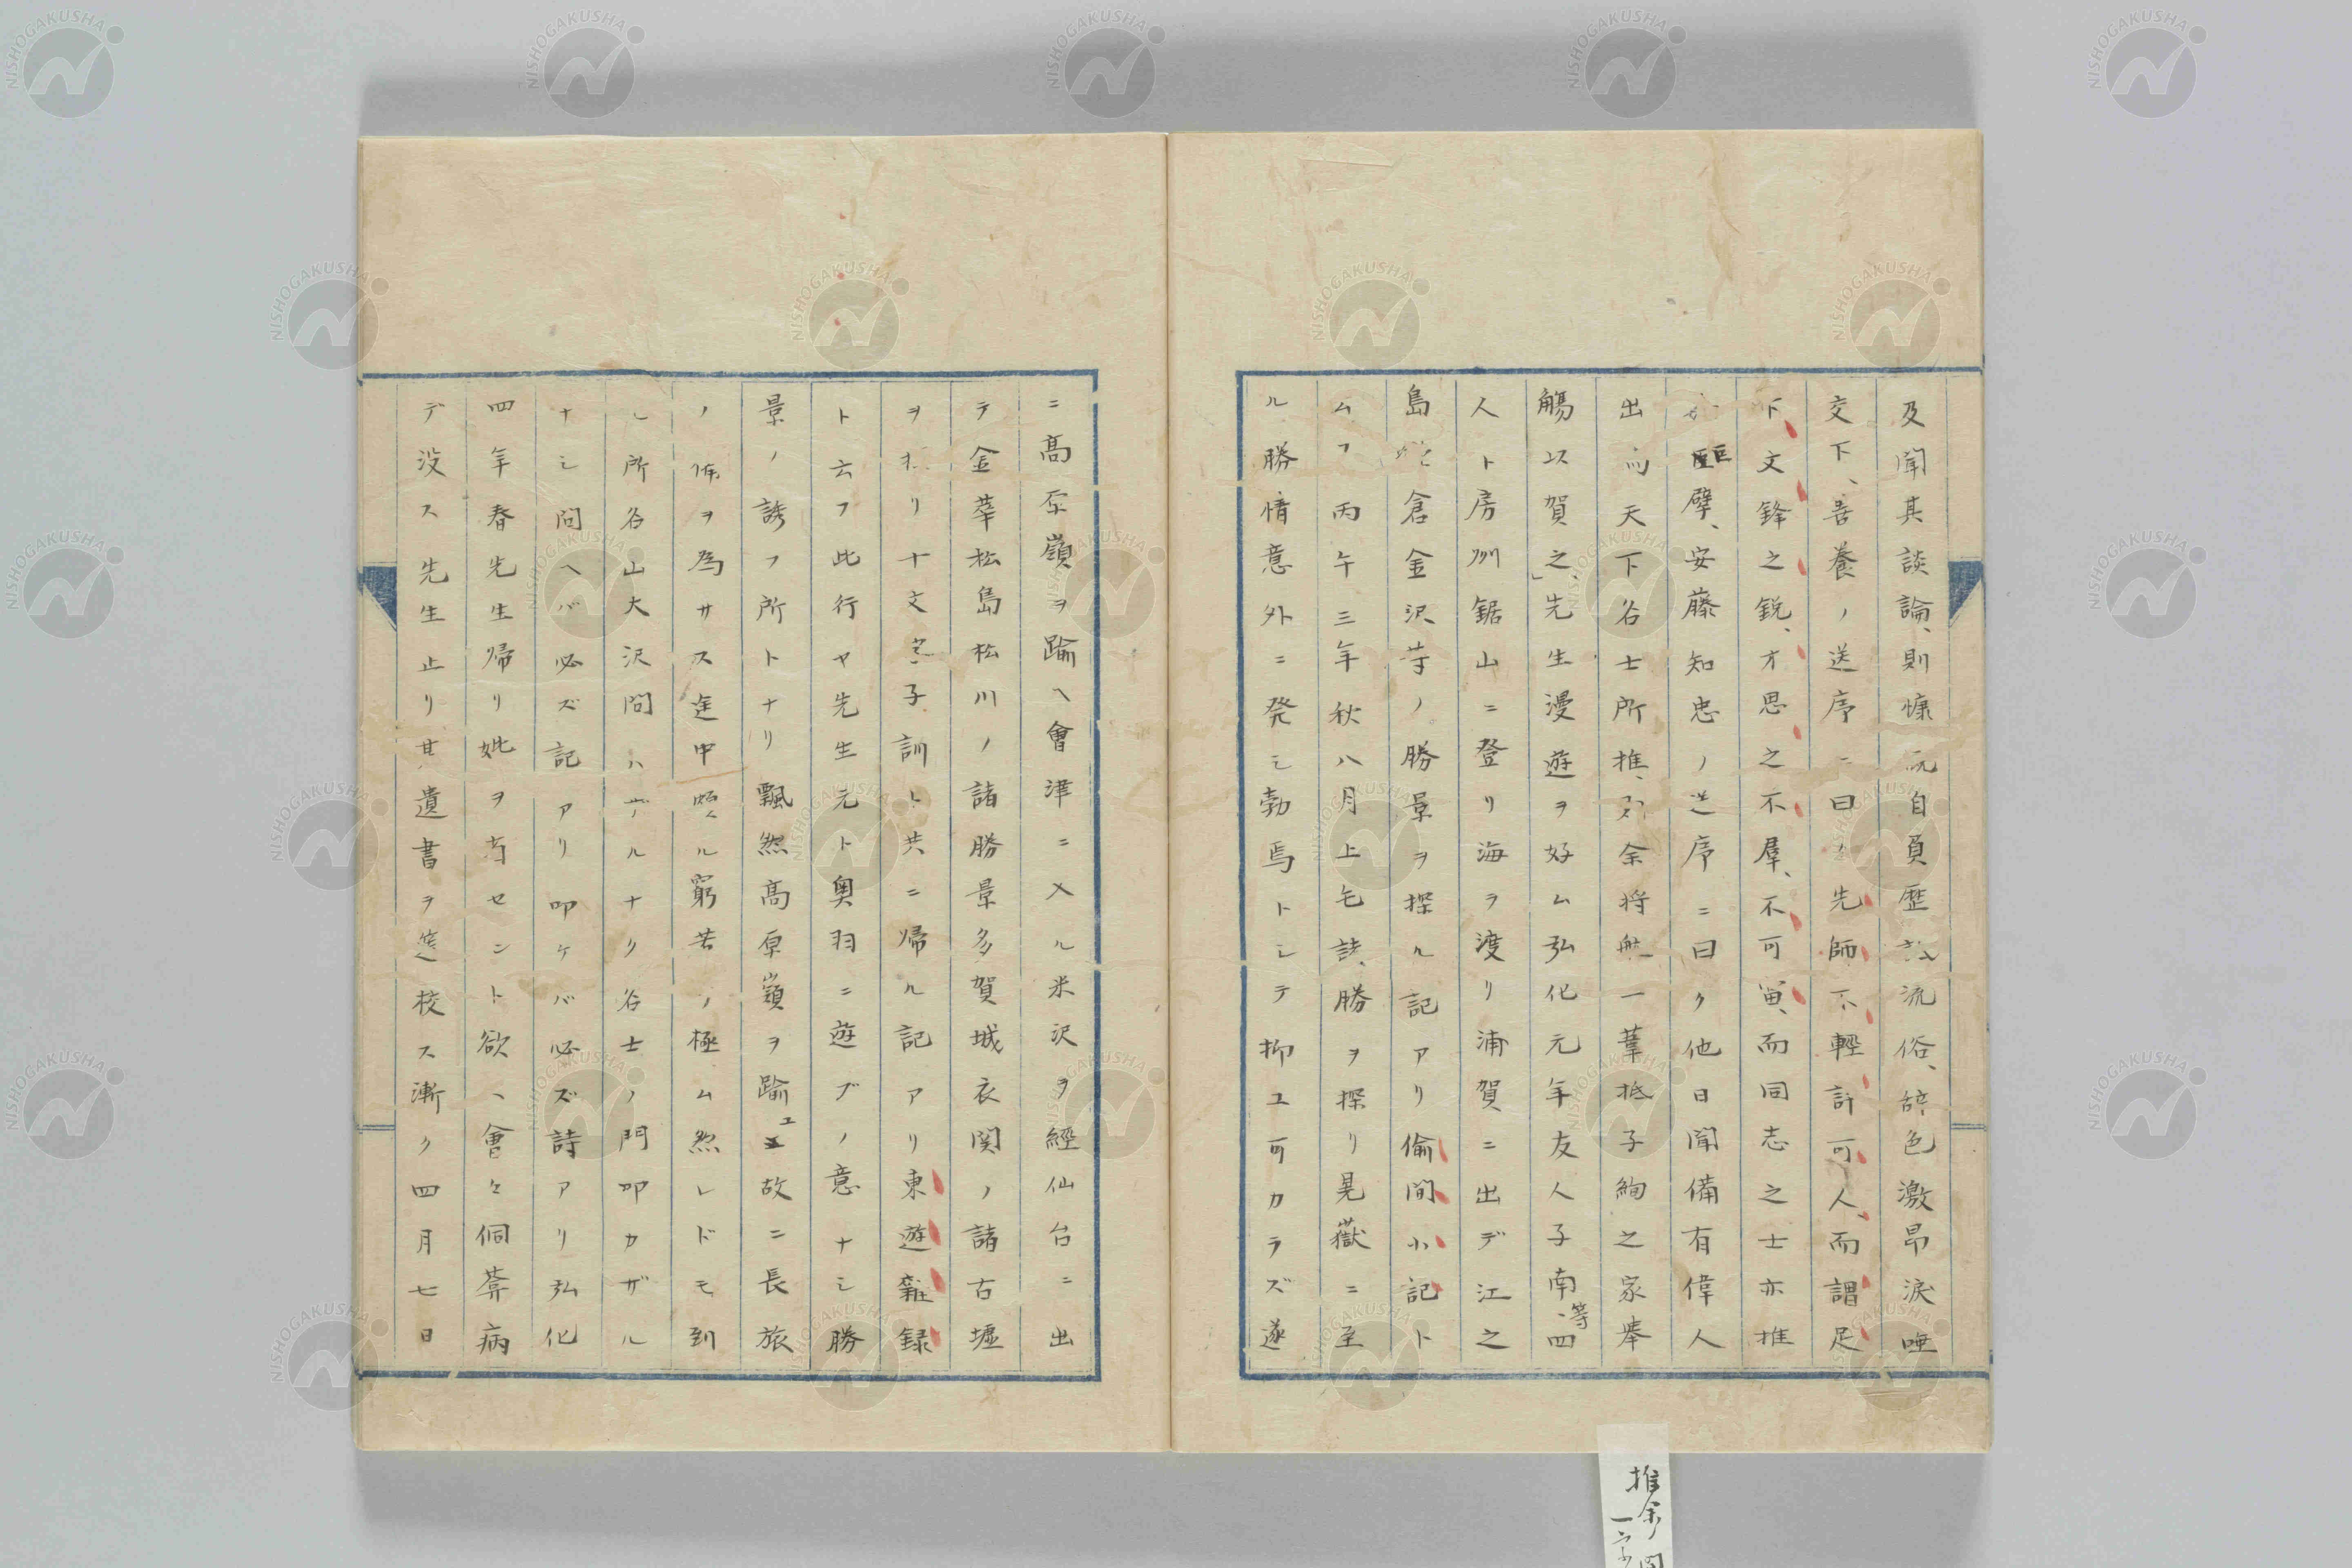 及聞其談論、則慷 自負歴 流俗、辞色激昂涙唾
交下、吾養ノ送序ニ曰 先師不輕許可人、而謂足
下文鋒之鋭、才思之不羣、不可 、而同志之士亦推
巨擘、安藤知忠ノ送序ニ曰ク他日聞備有偉人
出而天下谷士所推、 余将 一葦抵子絢之家挙
觴以賀之、」先生漫遊ヲ好ム弘化元年友人子南、等四
人ト房州鋸山ニ登リ海ヲ渡リ浦賀ニ出デ江之
島 倉金沢等ノ勝景ヲ探ル記アリ偷間小記ト
ム フ丙午三年秋八月上毛諸勝ヲ探リ晃嶽ニ至
ル勝情意外ニ発シ勃焉トシテ抑ユ可カラズ遂
ニ高 嶺ヲ踰ヘ會津ニ入ル米沢ヲ經仙台ニ出
テ金華松島松川ノ諸勝景多賀城衣関ノ諸古墟
ヲ リ十文 子訓ト共ニ帰ル記アリ東遊雜録
ト云フ此行ヤ先生元ト奥羽ニ遊ブノ意ナシ勝
景ノ誘フ所トナリ飄然高原嶺ヲ踰エ故ニ長旅
ノ備ヲ為サス途中 ル窮苦ノ極ム然レドモ到
ル所名山大沢問ハザルナク名士ノ門叩カザル
ナシ問ヘバ必ズ記アリ叩ケバ必ズ詩アリ弘化
四年春先生帰リ妣ヲ セント欲ヘ會々侗菴病
デ没ス先生止リ其遺書ヲ 校ス漸ク四月七日
推余ノ間
一字